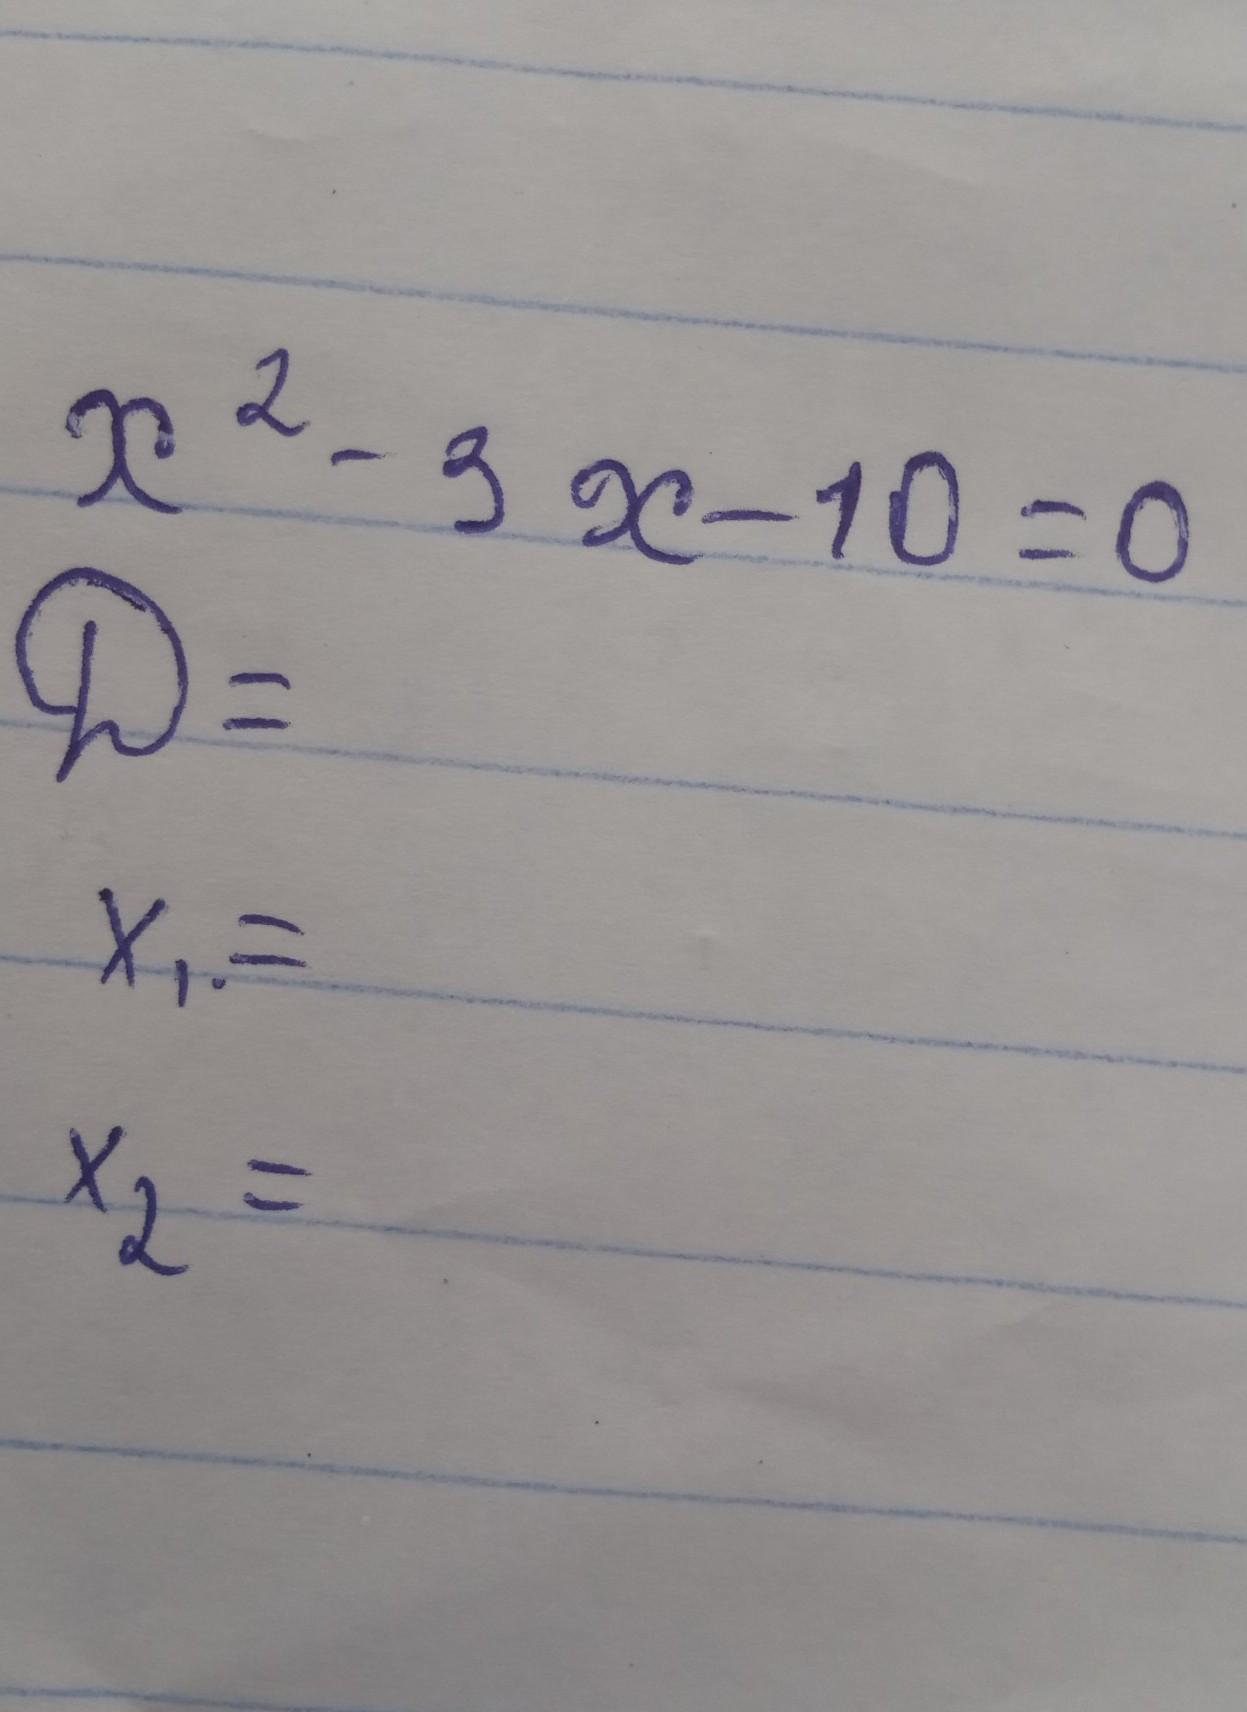 x² - 3x - 10 = 0
D =
x₁. =
x₂ =